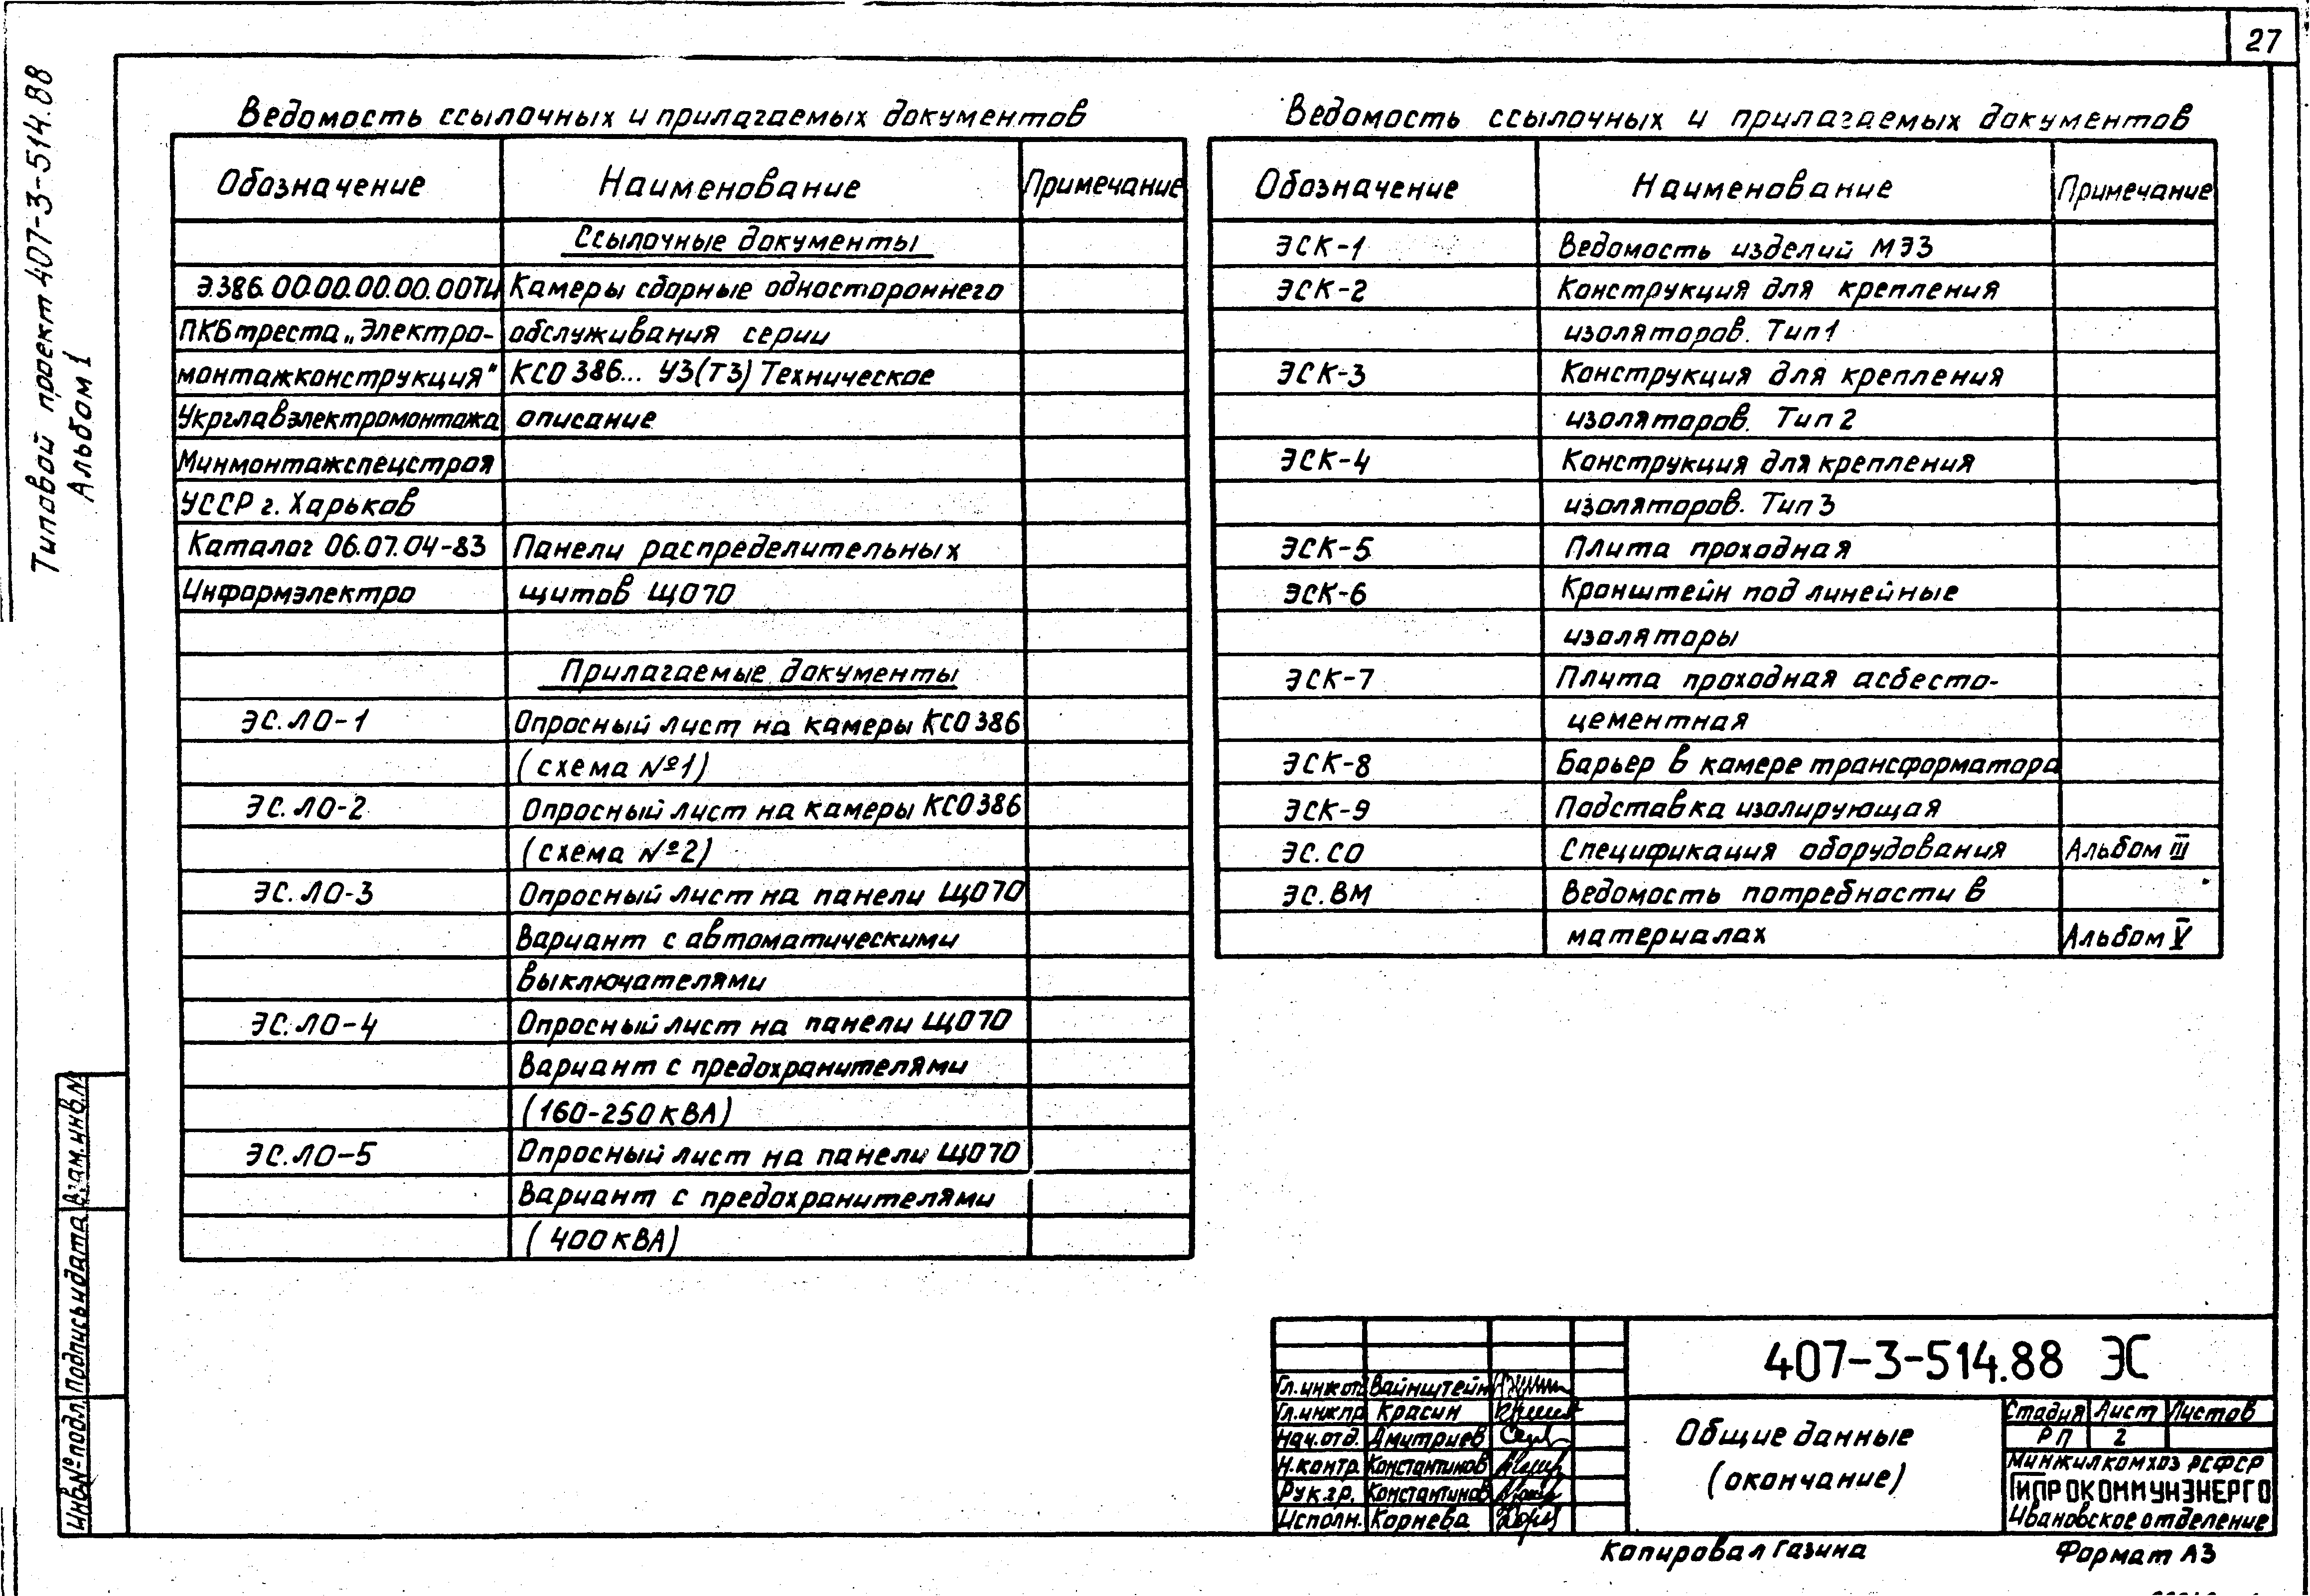 27
Типовой проект 407-3-514.88
Альбом 1
Ведомость ссылочных и прилагаемых документов
Обозначение Наименование Примечание
Ссылочные документы
Э.386.00.00.00.00.00ТИ Камеры сборные одностороннего
ПКБ треста „Электро- обслуживания серии
монтажконструкция" КСО 386... У3(Т3) Техническое
Укрглавэлектромонтажа описание
Минмонтажспецстроя
УССР г. Харьков
Каталог 06.07.04-83 Панели распределительных
Информэлектро щитов ЩО70
Прилагаемые документы
ЭС.ЛО-1 Опросный лист на камеры КСО386
(схема №1)
ЭС.ЛО-2 Опросный лист на камеры КСО386
(схема №2)
ЭС.ЛО-3 Опросный лист на панели ЩО70
Вариант с автоматическими
выключателями
ЭС.ЛО-4 Опросный лист на панели ЩО70
Вариант с предохранителями
(160-250кВА)
ЭС.ЛО-5 Опросный лист на панели ЩО70
Вариант с предохранителями
(400кВА)
Ведомость ссылочных и прилагаемых документов
Обозначение Наименование Примечание
ЭСК-1 Ведомость изделий МЭЗ
ЭСК-2 Конструкция для крепления
изоляторов. Тип1
ЭСК-3 Конструкция для крепления
изоляторов. Тип 2
ЭСК-4 Конструкция для крепления
изоляторов. Тип 3
ЭСК-5 Плита проходная
ЭСК-6 Кронштейн под линейные
изоляторы
ЭСК-7 Плита проходная асбесто-
цементная
ЭСК-8 Барьер в камере трансформатора
ЭСК-9 Подставка изолирующая
ЭС.СО Спецификация оборудования Альбом III
ЭС.ВМ Ведомость потребности в
материалах Альбом V
Взам.инв.№
Подпись и дата
Инв.№ подл.
407-3-514.88 ЭС
Гл.инж.от. Вайнштейн
Гл.инж.пр. Красин
Нач.отд. Дмитриев
Н.контр. Константинов
Рук.гр. Константинов
Исполн. Корнева
Общие данные
(окончание)
Стадия Лист Листов
РП 2
Минжилкомхоз РСФСР
ГИПРОКОММУНЭНЕРГО
Ивановское отделение
Копировал Газина
Формат А3